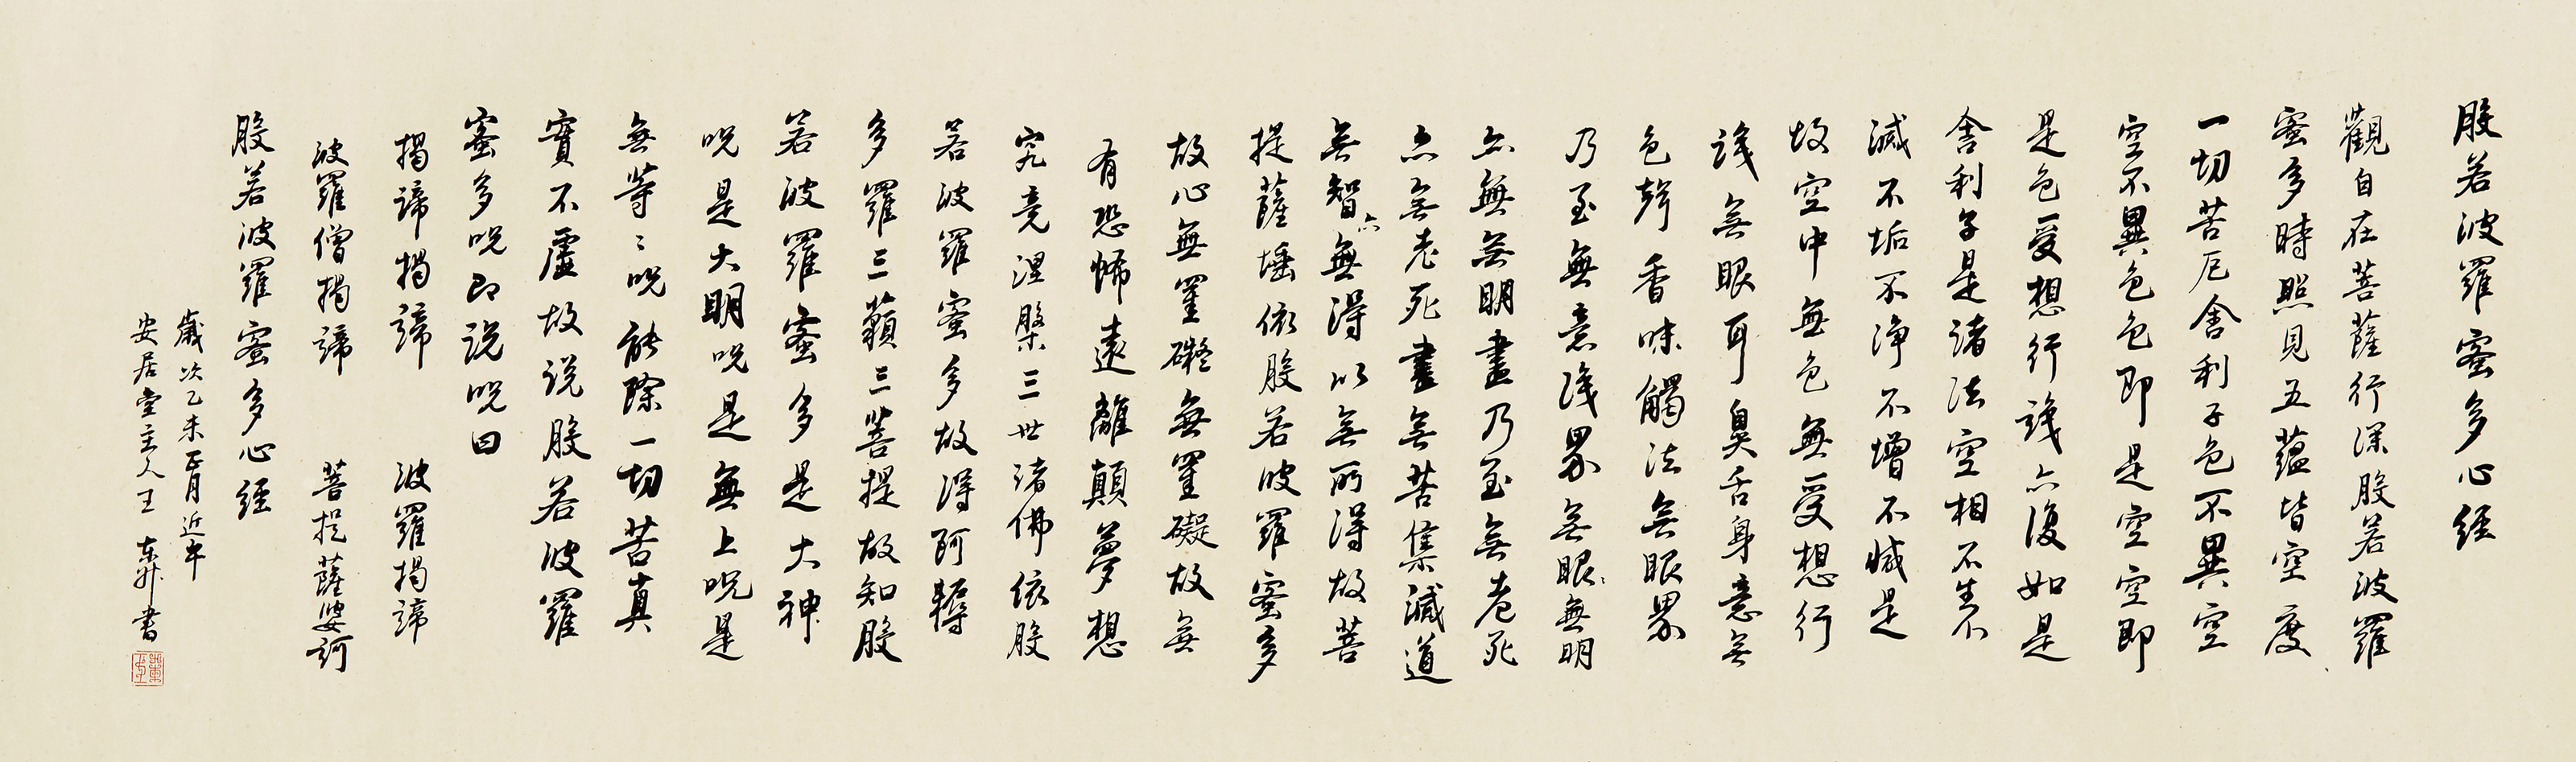 般若波羅蜜多心經
觀自在菩薩行深般若波羅
蜜多時照見五蘊皆空度
一切苦厄舍利子色不異空
空不異色色即是空空即
是色受想行識亦復如是
舍利子是諸法空相不生不
滅不垢不淨不增不減是
故空中無色無受想行
識無眼耳鼻舌身意無
色聲香味觸法無眼界
乃至無意識界無眼〻無明
亦無無明盡乃至無老死
亦無老死盡無苦集滅道
無智亦無得以無所得故菩
提薩埵依般若波羅蜜多
故心無罣礙無罣礙故無
有恐怖遠離顛夢想
究竟涅槃三世諸佛依般
若波羅蜜多故得阿耨
多羅三藐三菩提故知般
若波羅蜜多是大神
咒是大明咒是無上咒是
無等〻咒能除一切苦真
實不虛故說般若波羅
蜜多咒即說咒曰
揭諦揭諦 波羅揭諦
波羅僧揭諦 菩提薩婆訶
般若波羅蜜多心經
歲次乙未正月近午
安居堂主人王東升書